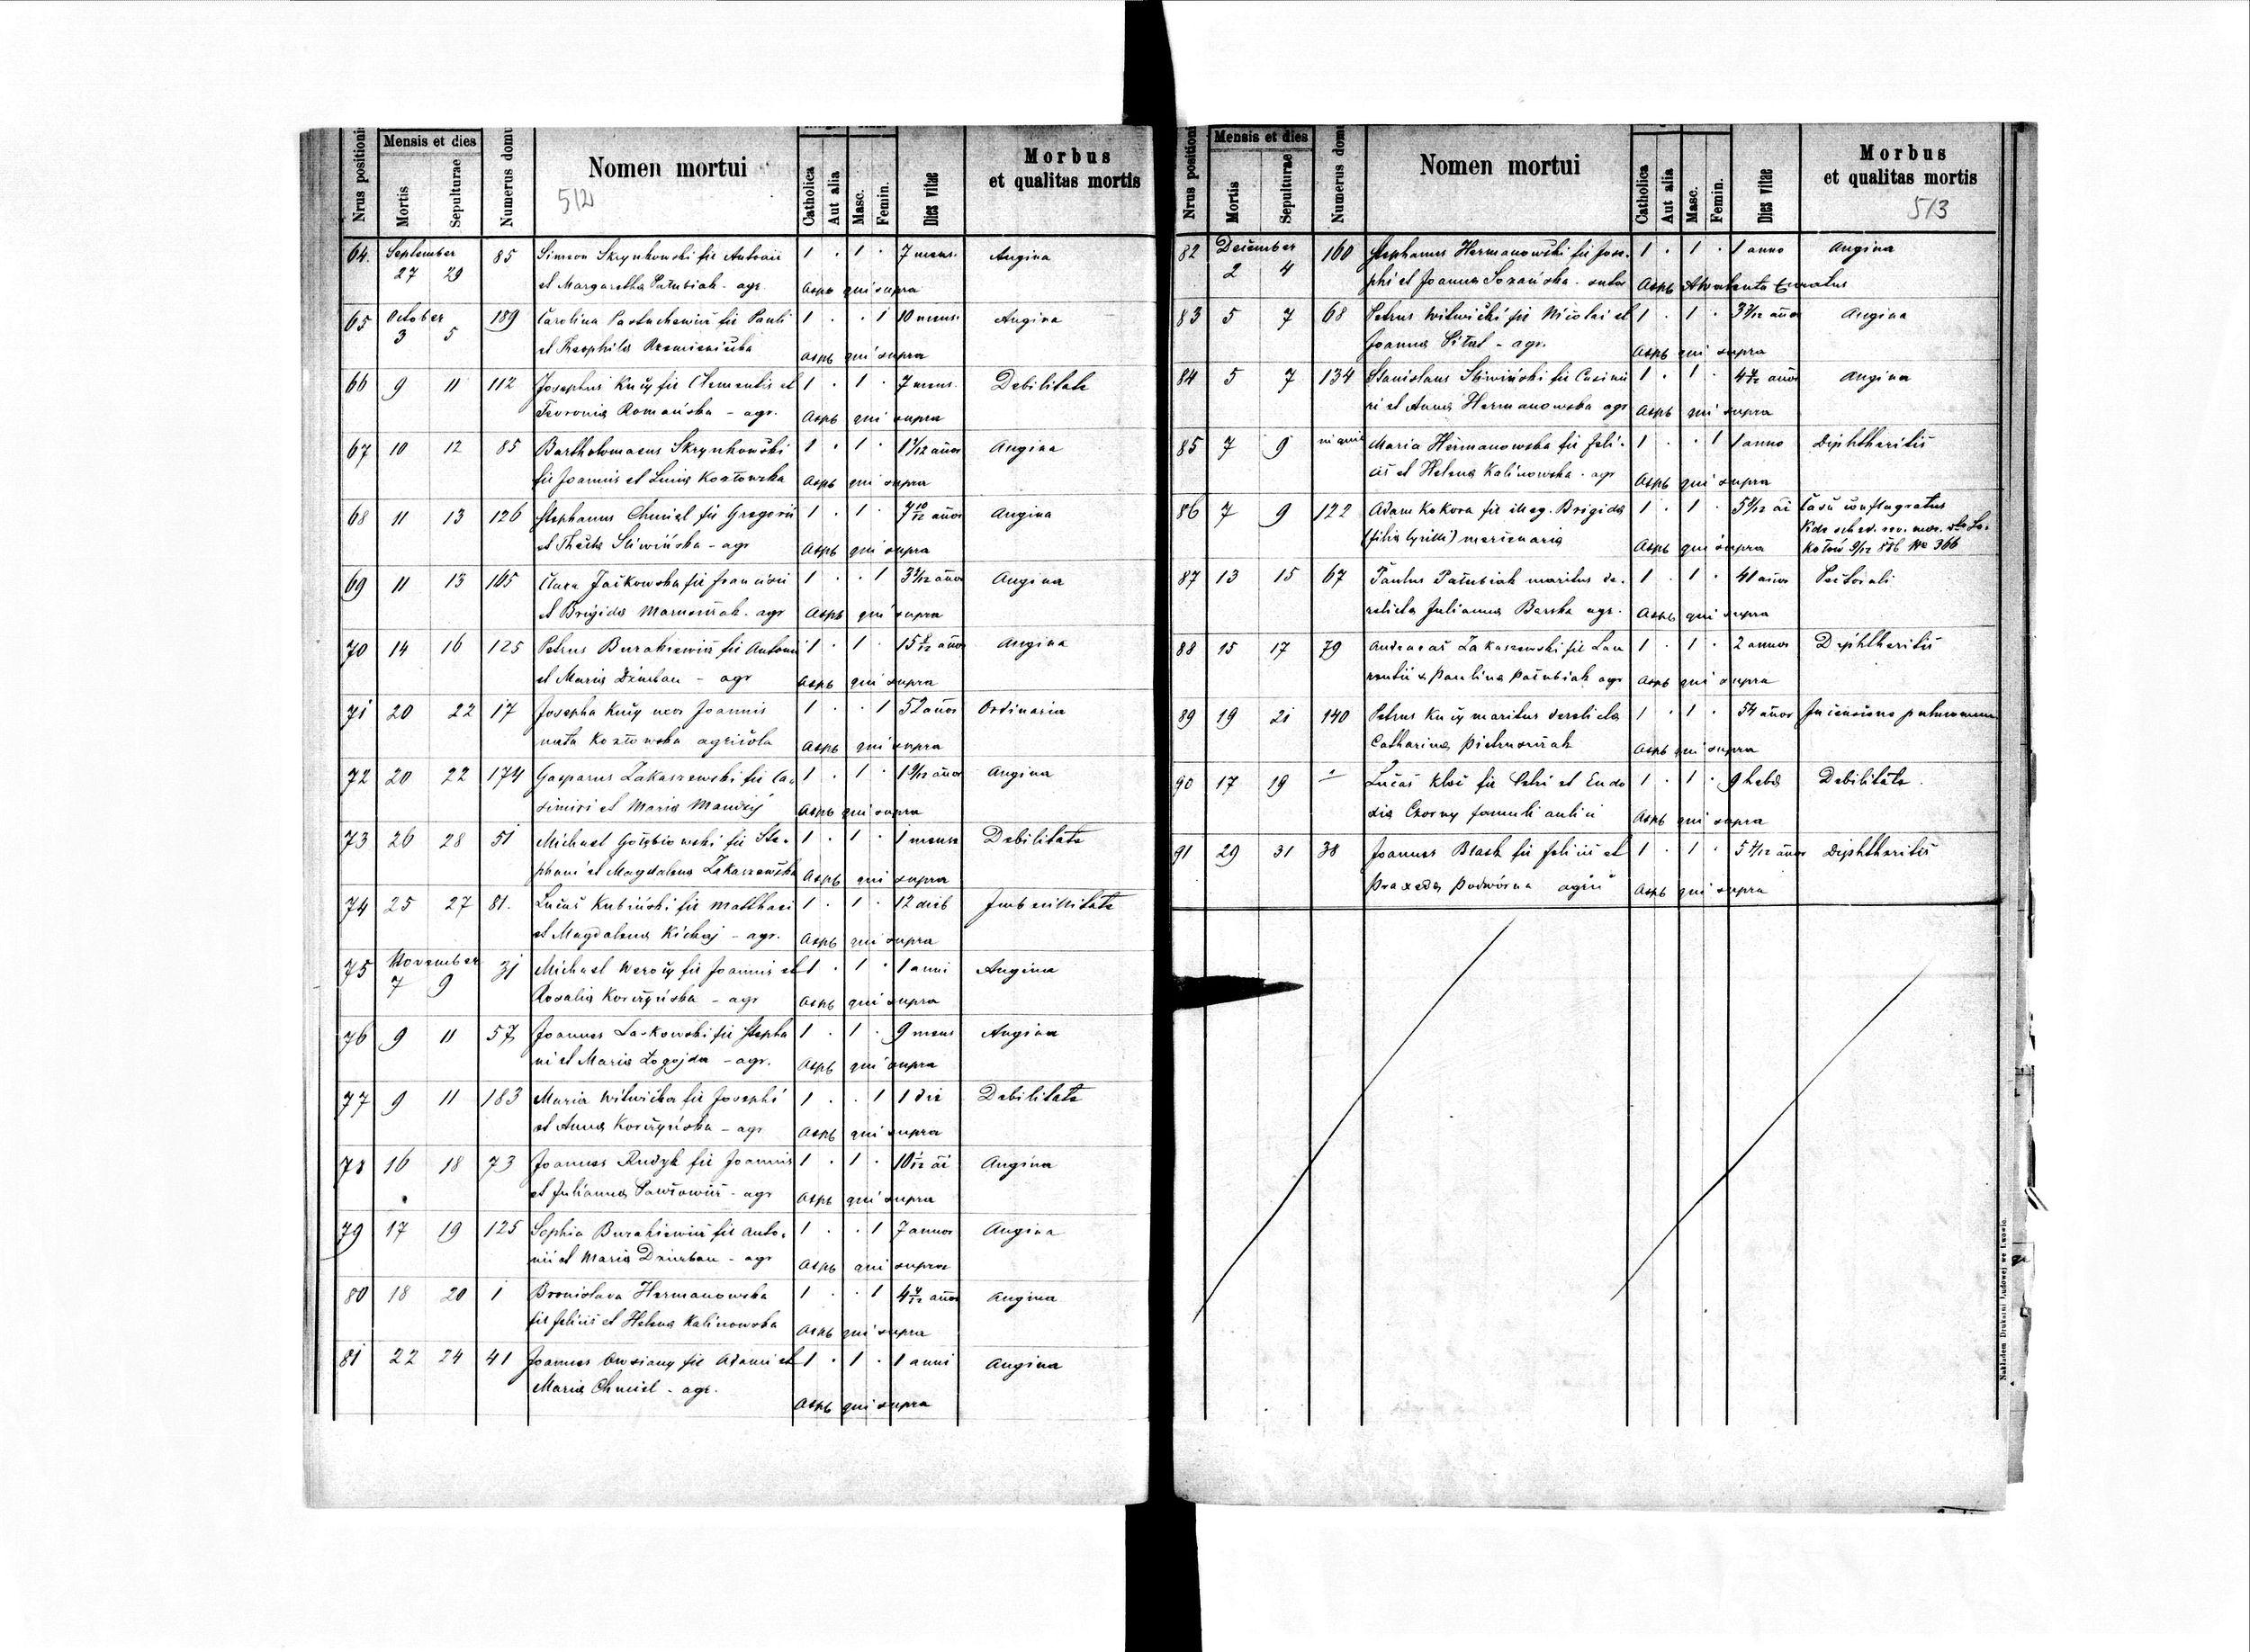 Nrus positionis
Mensis et dies
Mortis
Sepulturae
Numerus domus
Nomen mortui
512
Catholica
Aut alia
Masc.
Femin.
Dies vitae
Morbus
et qualitas mortis
64. September 85 Simeon Skrynkowski fil Antonii 1 . 1 . 7 mens. Angina
27 29 et Margaretha Patubiak - agr. qui supra
65 October 189 Carolina Pastuchewicz fil Pauli 1 . . 1 10 mens. Angina
3 5 et Theophila qui supra
66 9 11 112 Josephus Kucy fil Clementis et 1 . 1 . 7 mens. Debilitate
Fevronia Romańska - agr. qui supra
67 10 12 85 Bartholomaeus Skrynkowski 1 . 1 . años Angina
fil Joannis et Kozłowska qui supra
68 11 13 126 Stephanus Chmiel fil Gregorii 1 . 1 . 7 10/12 años Angina
et Thecla Sliwińska - agr qui supra
69 11 13 165 Clara Jaikowska fil Francisci 1 . . 1 años Angina
et Brigida - agr qui supra
70 14 16 125 Petrus Burakiewicz fil Antonii 1 . 1 . años Angina
et Maria Dziurban - agr qui supra
71 20 22 17 Josepha Kucy uxor Joannis 1 . . 1 52 años Ordinaria
nata Kozłowska agricola qui supra
72 20 22 174 Gasparus Zakaszewski fil Ca- 1 . 1 . años Angina
simiri et Maria qui supra
73 26 28 51 Michael Gołębiowski fil Ste- 1 . 1 . 1 mense Debilitate
phani et Magdalena Zakaszewska qui supra
74 25 27 81. Lucas Kubiński fil Matthaei 1 . 1 . 12 dieb Imbecillitate
et Magdalena Kichaj - agr. qui supra
75 November 31 Michael Werocy fil Joannis et 1 . 1 . 1 anni Angina
7 9 Rosalia Korczyńska - agr qui supra
76 9 11 57 Joannes Laskowski fil Stepha 1 . 1 . 9 mens Angina
ni et Maria Łogojda - agr. qui supra
77 9 11 183 Maria Witwicka fil Josephi 1 . . 1 1 die Debilitate
et Anna Korczyńska - agr qui supra
78 16 18 73 Joannes Rudyk fil Joannis 1 . 1 . Angina
et Julianna Pawłowicz - agr qui supra
79 17 19 125 Sophia Burakiewicz fil Anto- 1 . . 1 7 annos Angina
nii et Maria Dziurban - agr qui supra
80 18 20 1 Bronislava Hermanowska 1 . . 1 años Angina
fil Felicis et Helena Kalinowska qui supra
81 22 24 41 Joannes Owsiany fil Adami et 1 . 1 . 1 anni Angina
Maria Chmiel - agr. qui supra
Nrus positionis
Mensis et dies
Mortis
Sepulturae
Numerus domus
Nomen mortui
Catholica
Aut alia
Masc.
Femin.
Dies vitae
Morbus
et qualitas mortis
513
82 December 160 Stephanus Hermanowski fil Jose- 1 . 1 . 1 anno Angina
2 4 phi et Joanna Sozańska - sutor Curatus
83 5 7 68 Petrus Witwicki fil Nicolai et 1 . 1 . años Angina
Joanna - agr. qui supra
84 5 7 134 Stanislaus Sliwiński fil Casimi 1 . 1 . años Angina
ri et Anna Hermanowska agr qui supra
85 7 9 Maria Hermanowska fil Feli- 1 . . 1 1 anno Diphtheritis
cis et Helena Kalinowska - agr qui supra
86 7 9 122 Adam Kokora fil illeg. Brigida 1 . 1 . casu conflagratus
(filia Cyrilli) mercenaria qui supra
Vide sched. rev. mor.
9/12 886 No 366
87 13 15 67 Paulus Patubiak maritus de- 1 . 1 . 41 años Pectorali
relicta Julianna Barska agr. qui supra
88 15 17 79 Andreas Zakaszewski fil Lau 1 . 1 . 2 annos Diphtheritis
rentii & Paulina Patubiak agr qui supra
89 19 21 140 Petrus Kucy maritus derelicta 1 . 1 . 54 años pulmonum
Catharina Pietruszak qui supra
90 17 19 Lucas fil Petri et Eudo 1 . 1 . 9 hebd Debilitate.
xia Czorny famuli aulici qui supra
91 29 31 38 Joannes Blask fil Felicis et 1 . 1 . años Diphtheritis
Praxeda Podwórna agric qui supra
Nakładem Drukarni Ludowej we Lwowie.